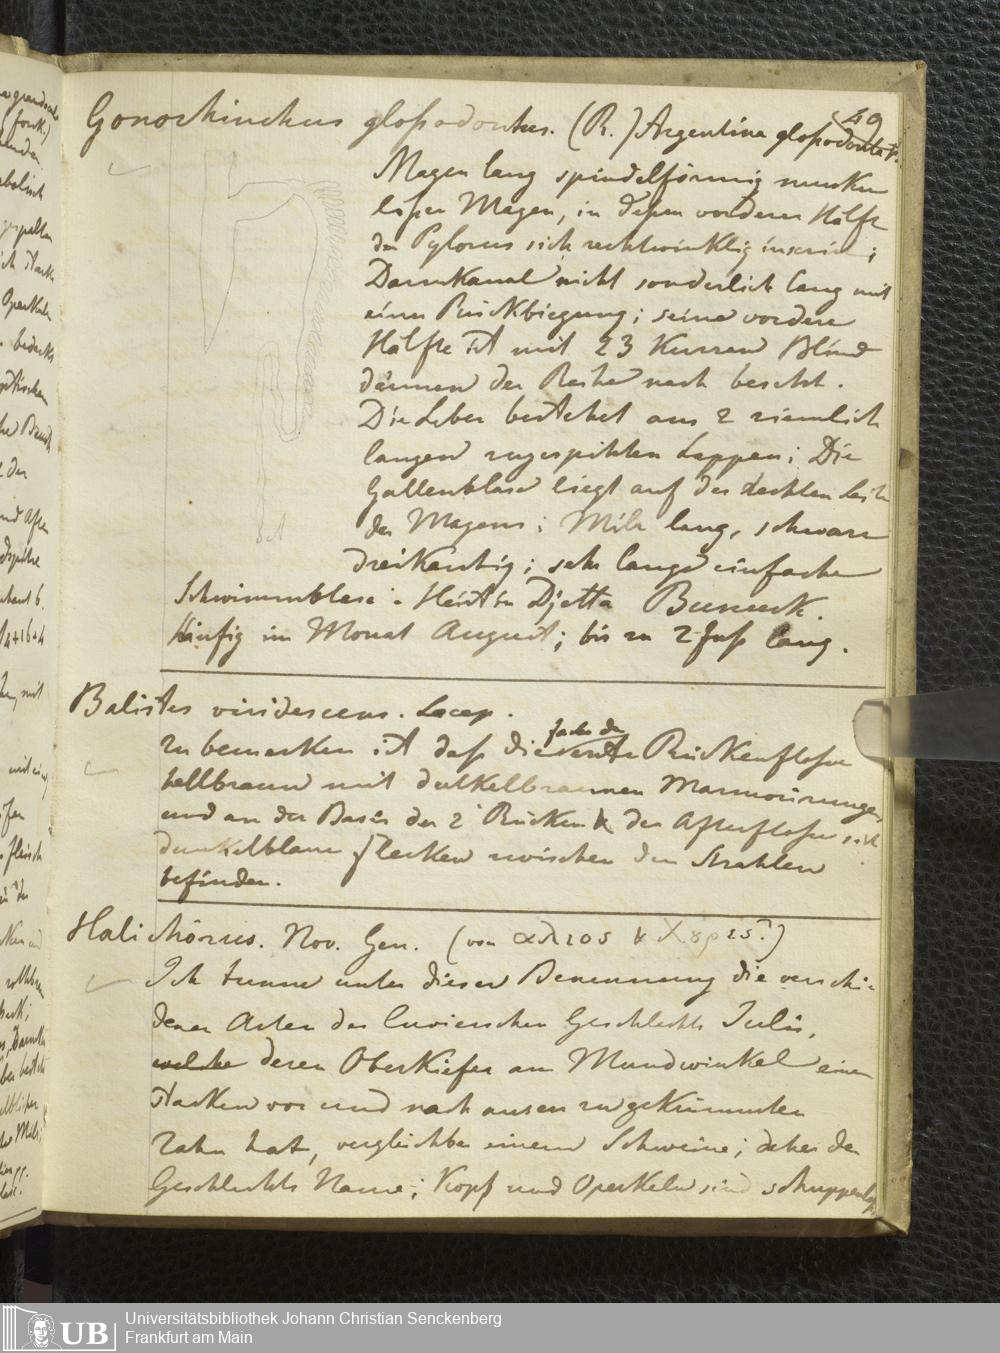 49
Gonorhinchus glossodontus. (R.) Argentina glossodonta F.
Magen lang spindelförmig musku
loser Magen, in dessen vorderer Hälfte
der Pylorus sich rechtwinklig inserirt;
Darmkanal nicht sonderlich lang mit
einer Rückbiegung; seine vordere
Hälfte ist mit 23 kurzen Blind
därmen der Reihe nach besetzt.
Die Leber bestehet aus 2 ziemlich
langen zugespitzten Lappen; Die
Gallenblase liegt auf der rechten Seite
des Magens; Milz lang, schwarz
dreikantig; sehr lange einfache
Schwimmblase. Heist in Djetta Bunuk.
Häufig im Monat August; bis zu 2 Fuß lang.
Balistes viridescens. Lacep.
zu bemerken ist daß die Rückenflosse
hellbraun mit dunkelbraunen Marmorirungen
und an der Basis der 2 Rücken & der Afterflosse sich
dunkelblaue Flecken zwischen den Strahlen
befinden.
Halichörus. Nov. Gen. (von
Ich trenne unter dieser Benennung die verschie
denen Arten des Cuvierschen Geschlechts Julis,
welche deren Oberkiefer am Mundwinkel einen
starken vor und nach aussen zu gekrümmten
Zahn hat, vergleichbar einem Schweine; daher der
Geschlechts Name; Kopf und Operkeln sind schuppenlos
Universitätsbibliothek Johann Christian Senckenberg
UB Frankfurt am Main